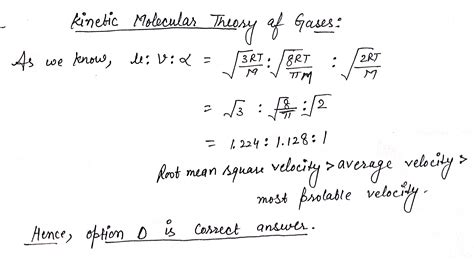 Kinetic Molecular Theory of Gases:
As we know, u : v : α = √(3RT/M) : √(8RT/πM) : √(2RT/M)
= √3 : √(8/π) : √2
= 1.224 : 1.128 : 1
Root mean square velocity > average velocity >
most probable velocity.
Hence, option D is correct answer.